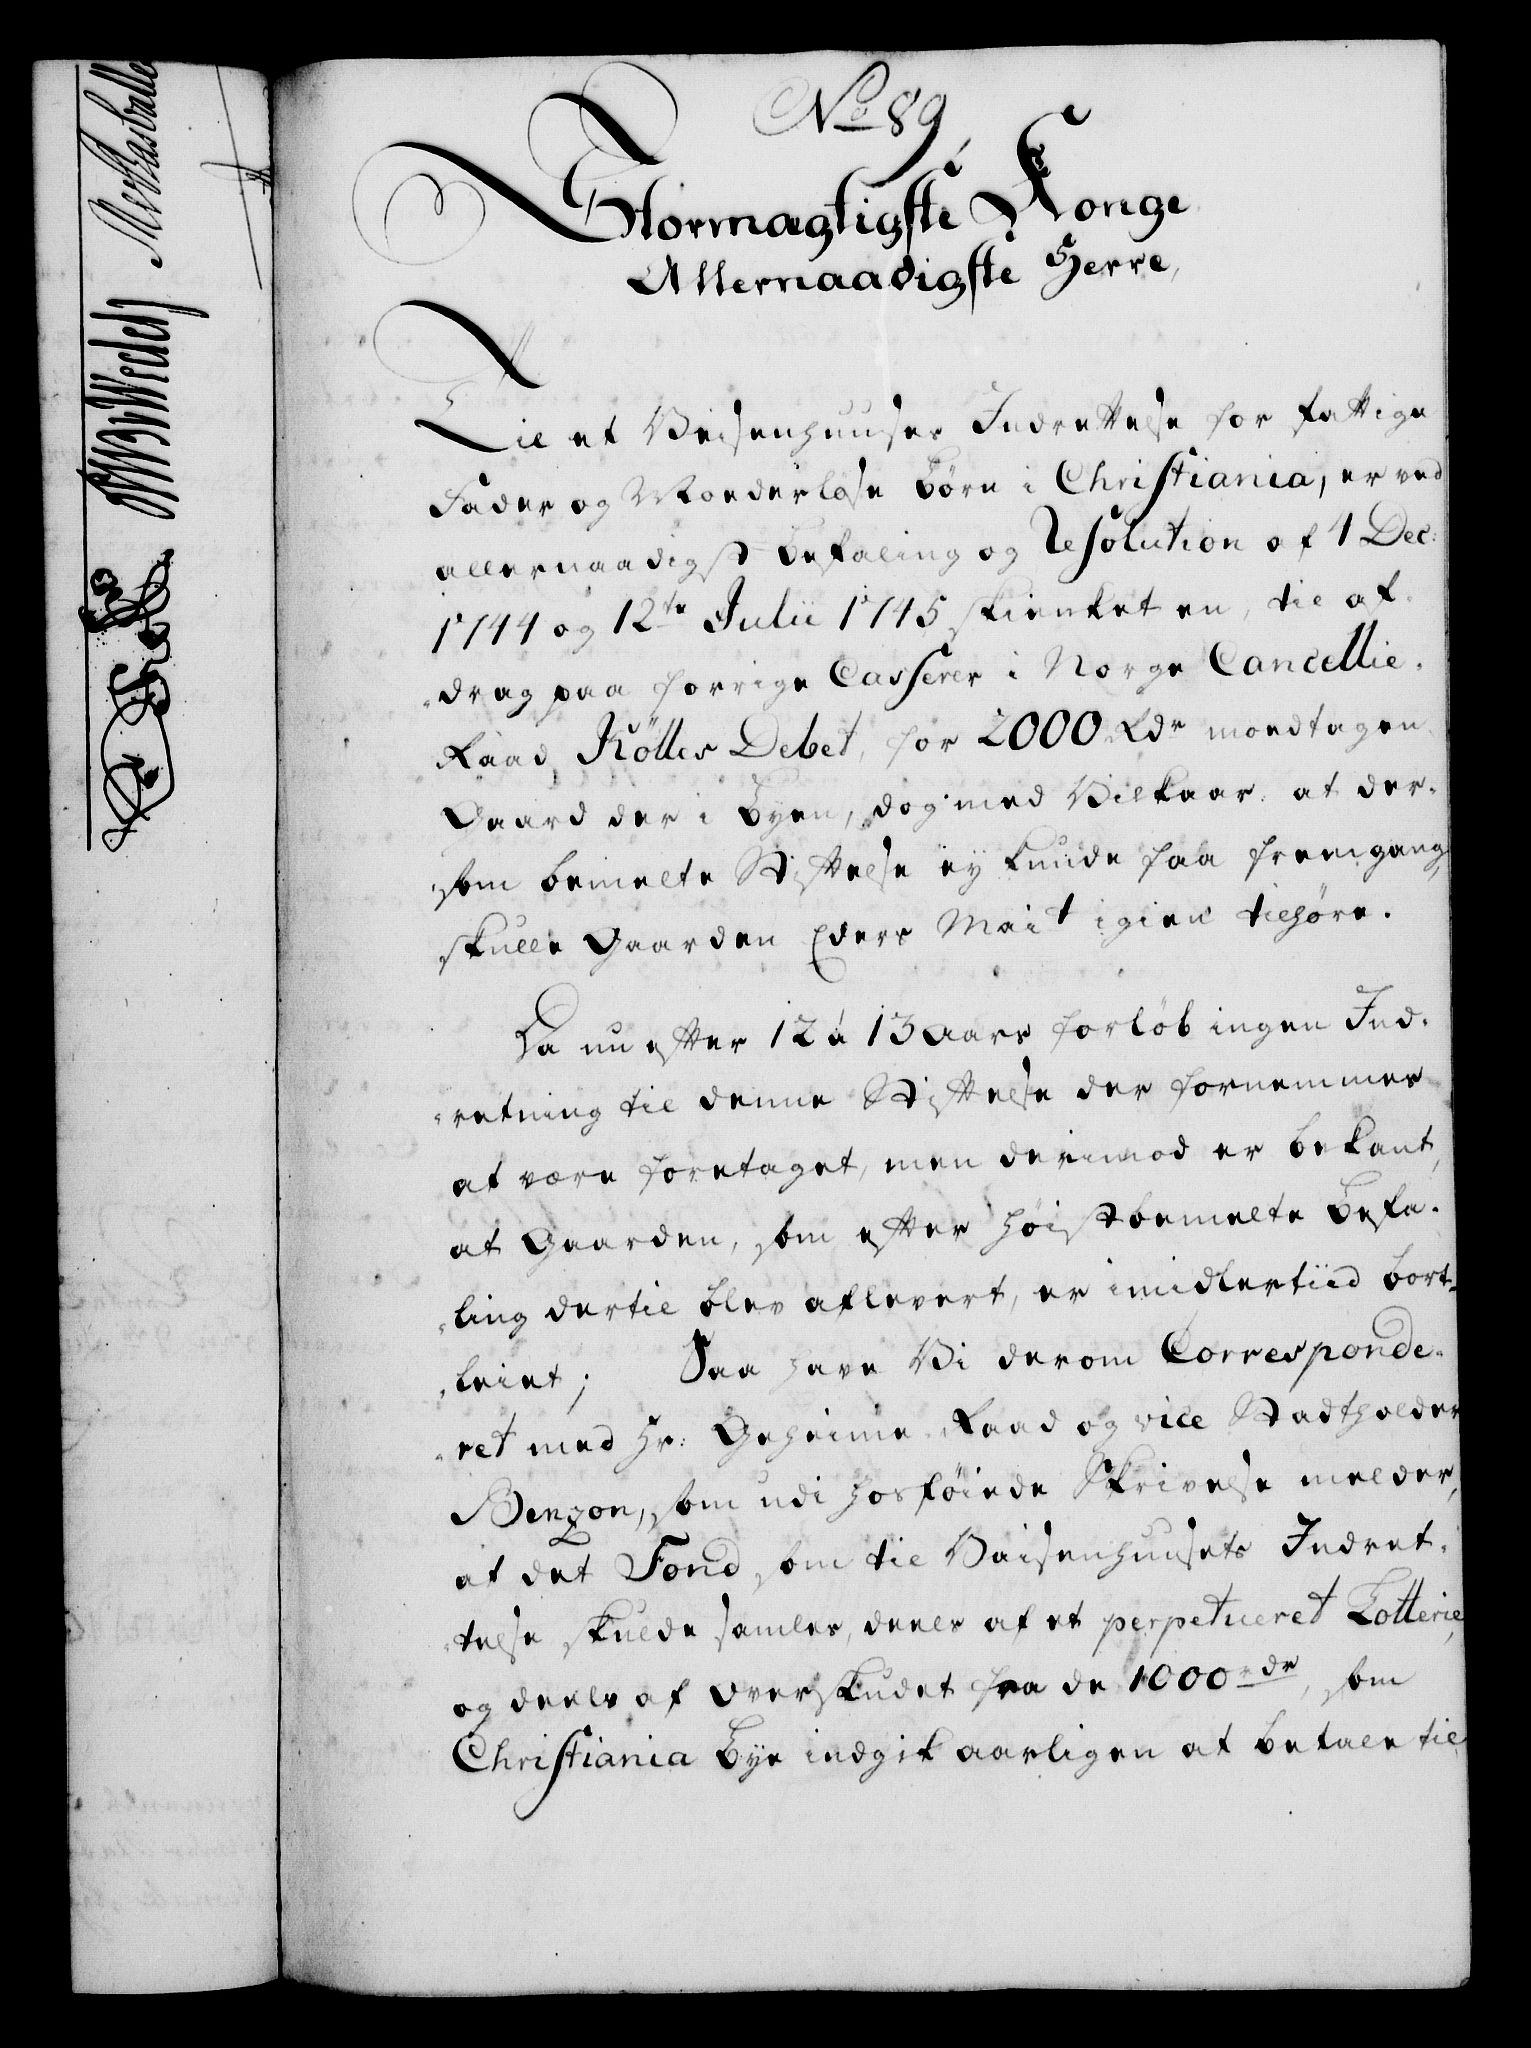 No 89
Stormægtigste Konge
Allernaadigste Herre,
Til et Veisenhuuses Indrettelse for fattige
Fader og Moederløse Børn i Christiania, er ved
allernaadigst Befaling og Resolution af 1 Dec:
1744 og 12te Julii 1745 skienket en, til af-
drag paa forrige Casserer i Norge Cancellie-
Raad Kølles Debet, for 2000 Rdr modtagen
Gaard der i Byen, dog med Vilkaar, at der-
som bemelte Stiftelse ey kunde faa fremgang,
skulle Gaarden Eders Mait igien tilhøre.
Da nu efter 12 à 13 Aars forløb ingen Ind-
retning til denne Stiftelse der fornemmes
at være foretaget, men derimod er bekant,
at Gaarden, som efter høistbemelte Befa-
ling dertil blev aflevert, er imidlertiid bort-
leiet; Saa have Vi derom Corresponde-
ret med Hr: Geheime-Raad og vice Stadtholder
Benzon, som udi hosføiede Skrivelse melder,
at det Fond som til Vaisenhuusets Indret-
telse skulde samles, deels af et perpetueret Lotterie,
og deels af Overskudet fra de 1000 rdr, som
Christiania Bye indgik aarligen at betale til